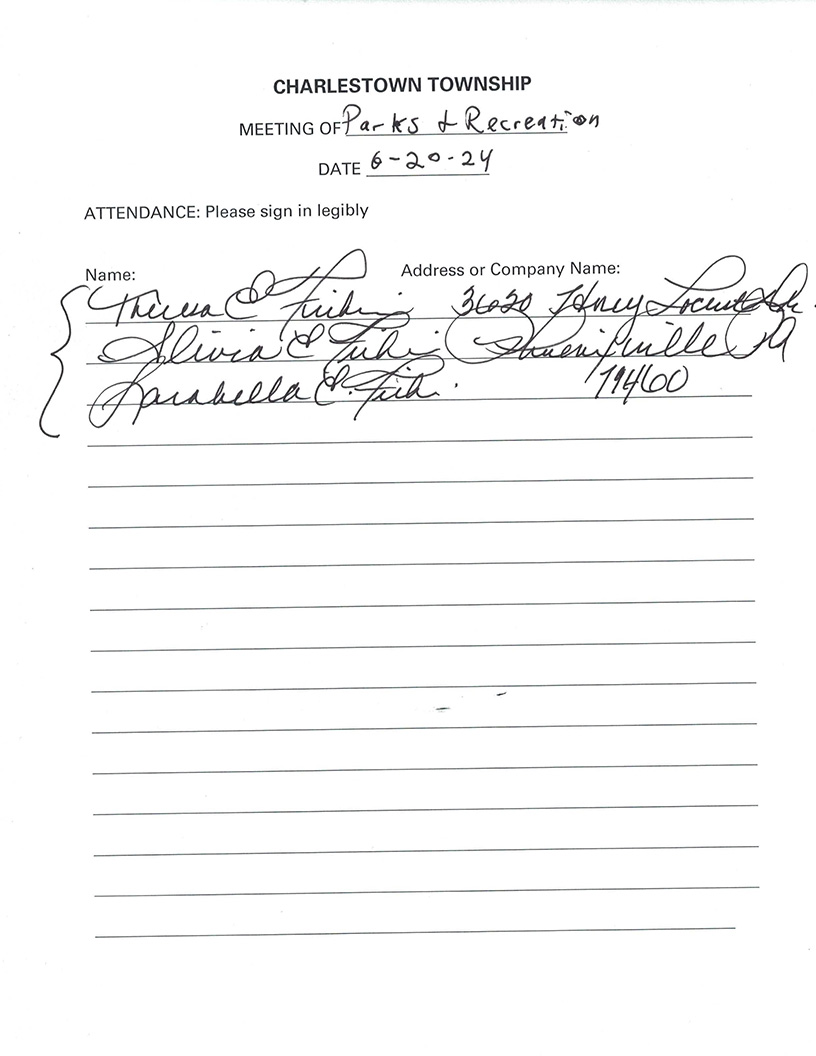 CHARLESTOWN TOWNSHIP
MEETING OF Parks & Recreation
DATE 6-20-24
ATTENDANCE: Please sign in legibly
Name: Address or Company Name:
Theresa E Honey Locust
Olivia E Phoenixville PA
Larabella E. 19460